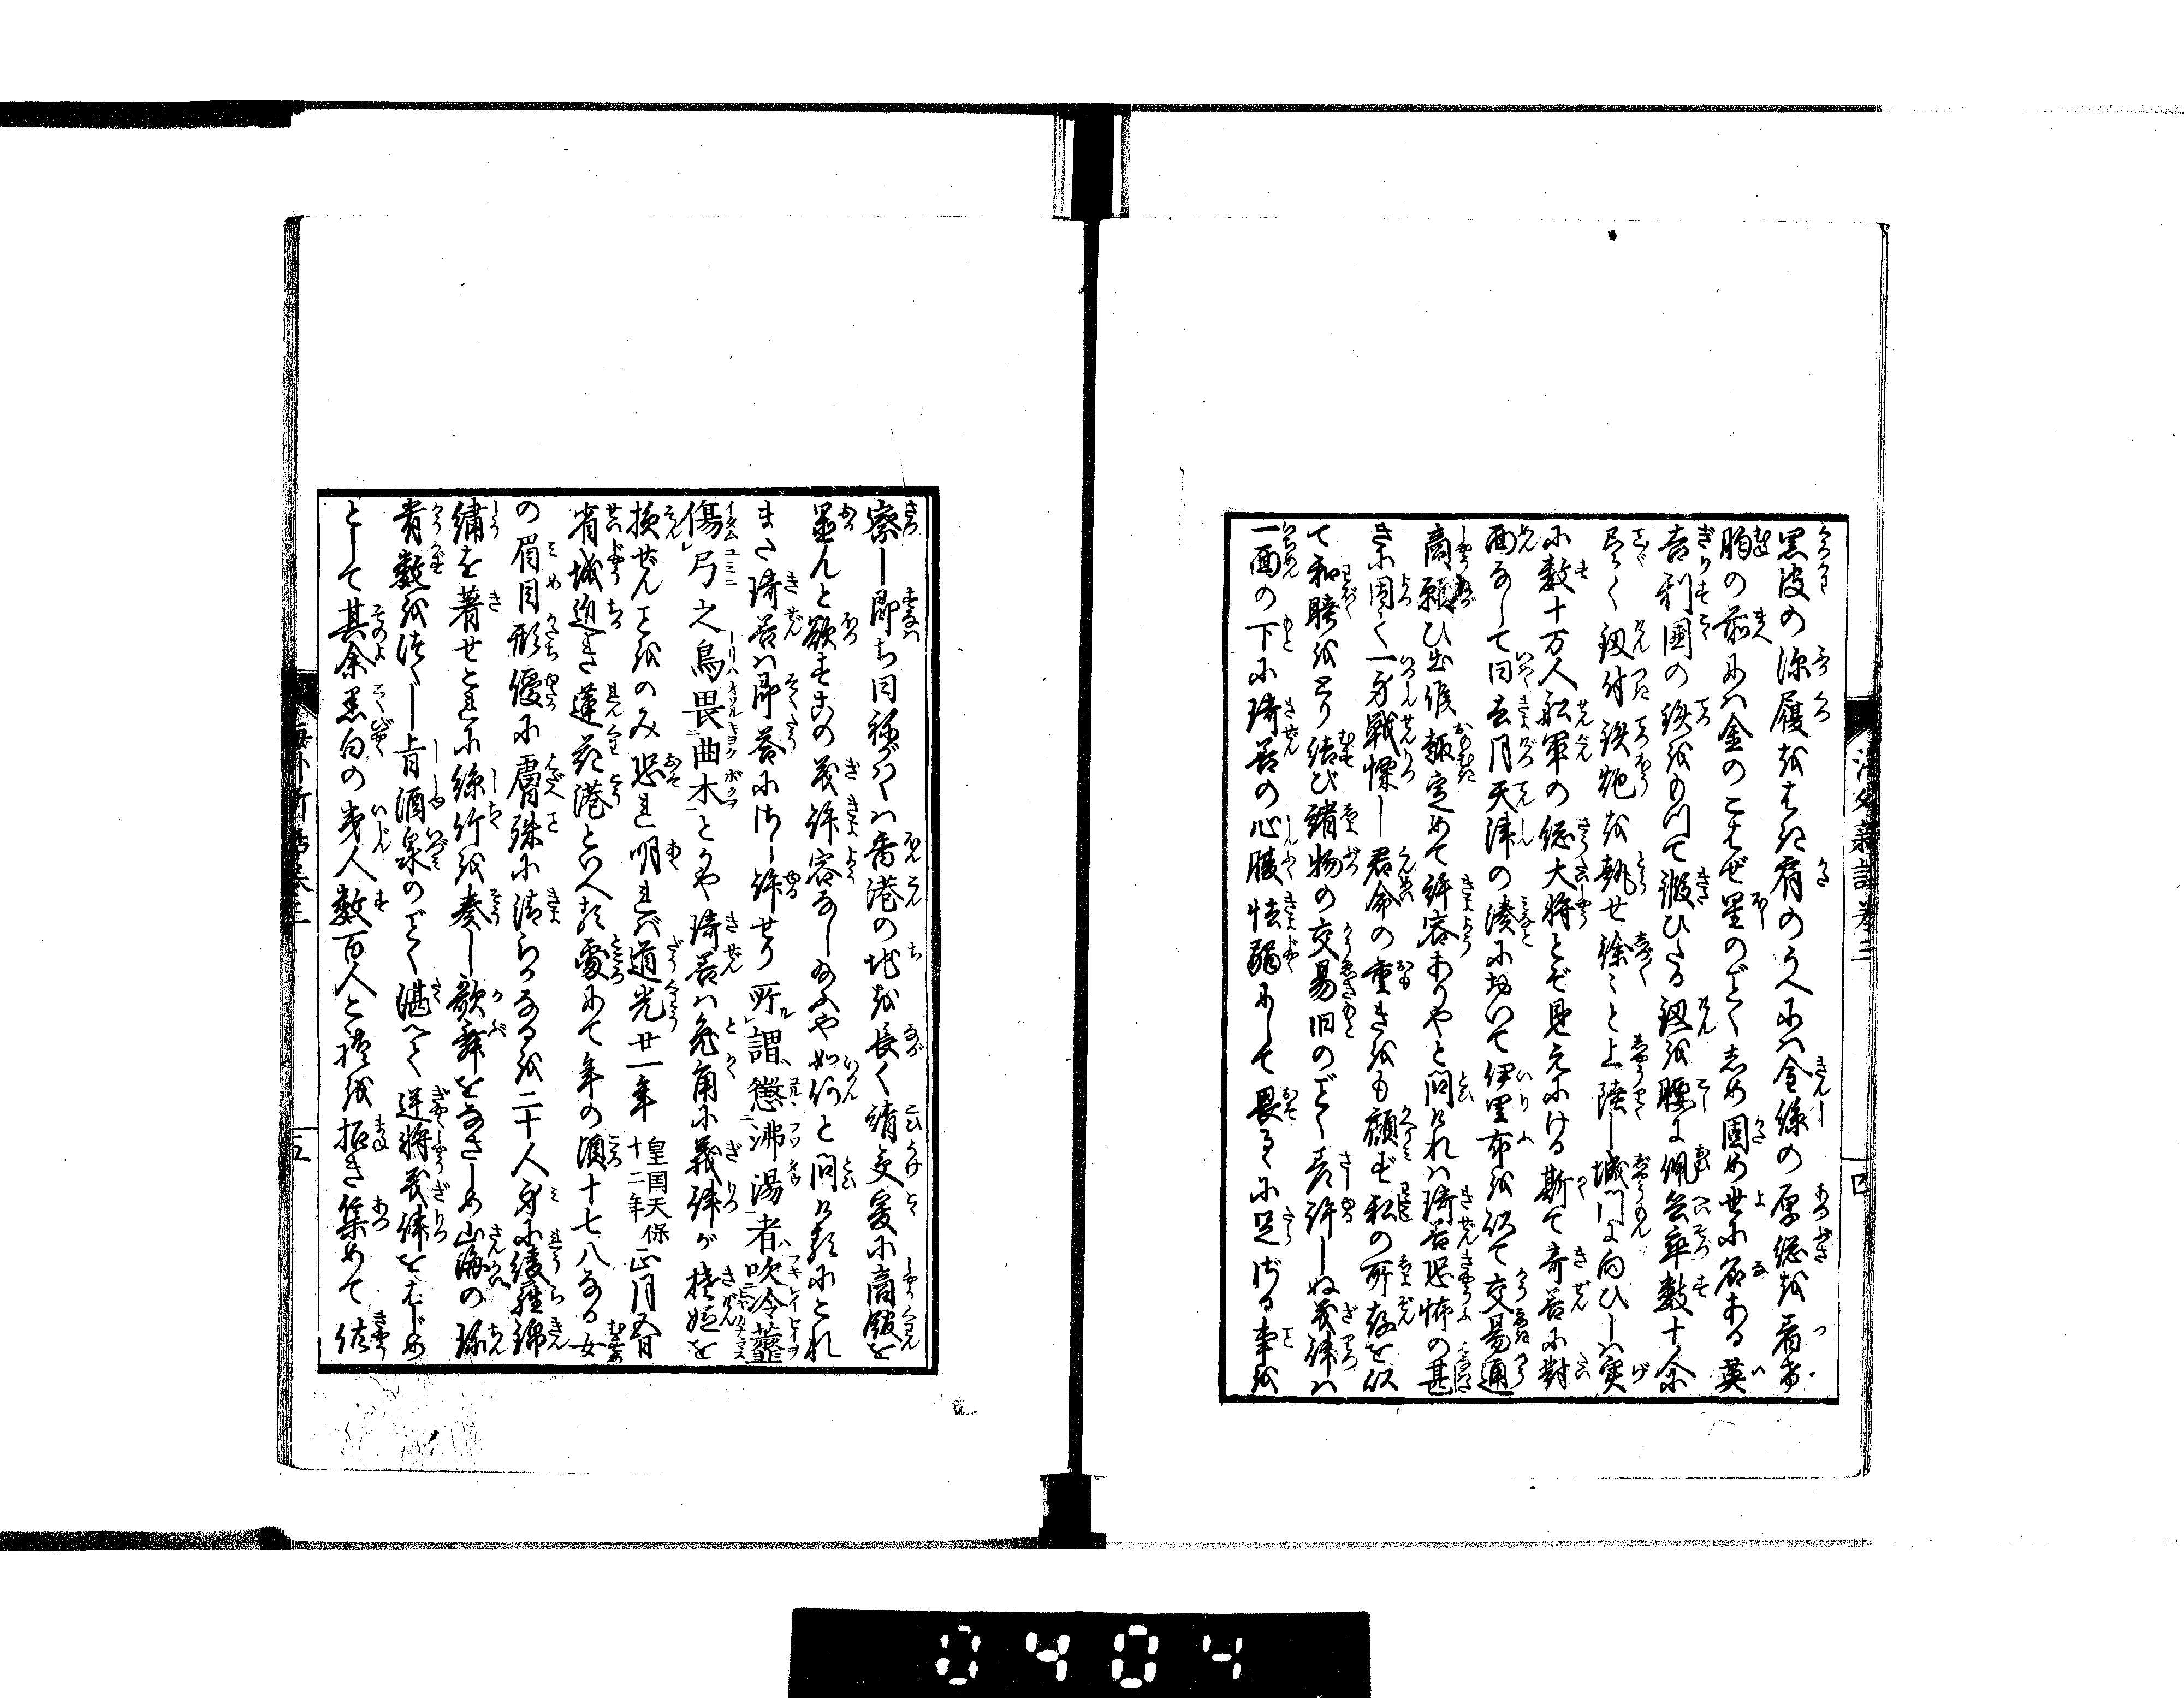 黒皮の深履をはき肩のうへには金絲の厚総を着
胸の前には金のこはぜ星のごとく志め固め世に名ある英
吉利國の鉄をもつて鍛ひたる釼を腰に佩兵卒数十余
尽く釼付鉄炮を執せ徐々と上陸し城門に向ひしハ実
に数十万人舩軍の總大將とぞ見えにける斯て奇善に對
面なして曰去月天津の湊に於いて伊里布を以て交易通
商願ひ出候趣定めて許容ありやと問けれハ琦善恐怖の甚
きに因て一身戰慄し君命の重きをも顧ず私の所存を以
て和睦をとり結び諸物の交易旧のごとく差許しぬ義律ハ
一面の下に琦善の心腹怯弱にして畏るゝに足ざる事を
察し即ち曰称がハくハ香港の地を長く請受爰に商館を
置んと欲すこの義許容なし給ふや如何と問けるにとれ
また琦善ハ即答に許せり所謂懲沸湯者吹冷虀
傷弓之鳥畏曲木とかや琦善ハ兎角に義律が機嫌を
損ぜんことをのみ恐る明れバ道光廿一年皇国天保十二年正月五日
省城近き蓮花港といへる處にて年の頃十七八なる女
の眉目形優に膚殊に清らかなるを二十人身に綾羅錦
繍を着せとゝに絲竹を奏し歌舞をなさしめ山海の珍
肴数を濃し旨酒泉のごとく湛へて逆將義律をはじめ
として其余黒白の夷人数百人と襟を招き集めて佳
海外新話卷三
四
五
0404